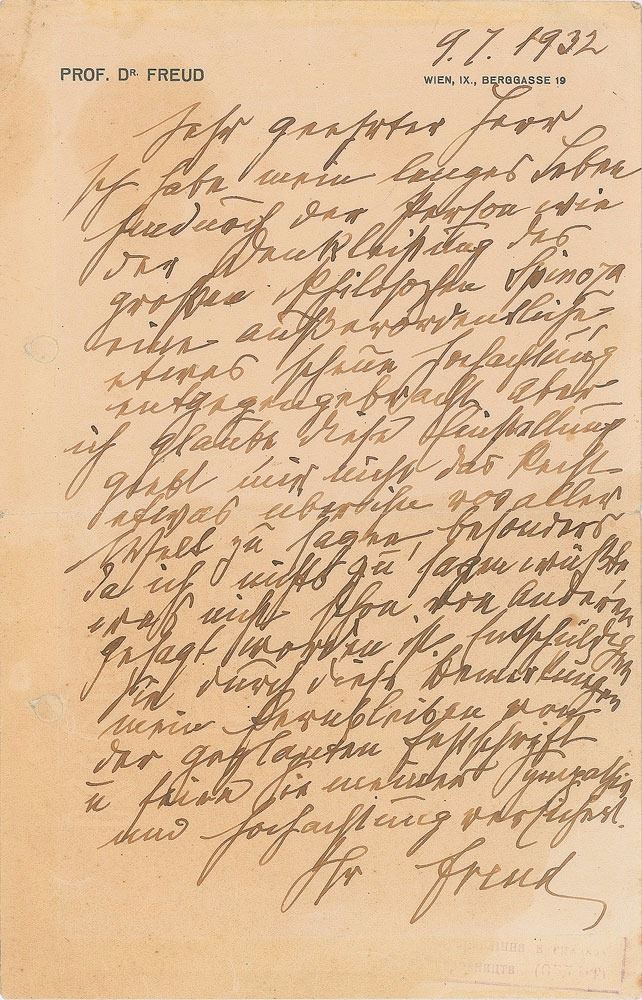 9.7.1932
PROF. DR. FREUD
WIEN, IX., BERGGASSE 19
Sehr geehrter Herr
Ich habe mein langes Leben
hindurch der Person wie
der Denkleistung des
großen Philosophen Spinoza
eine außerordentliche,
etwas scheue Hochachtung
entgegengebracht. Aber
ich glaube diese Einstellung
giebt mir nicht das Recht
etwas über ihn vor aller
Welt zu sagen, besonders
da ich nichts zu sagen wüßte
was nicht schon von Anderen
gesagt worden ist. Entschuldigen
Sie durch diese Bemerkungen
mein Fernbleiben von
der geplanten Festschrift
u seien Sie meiner Sympathie
und Hochachtung versichert.
Ihr Freud